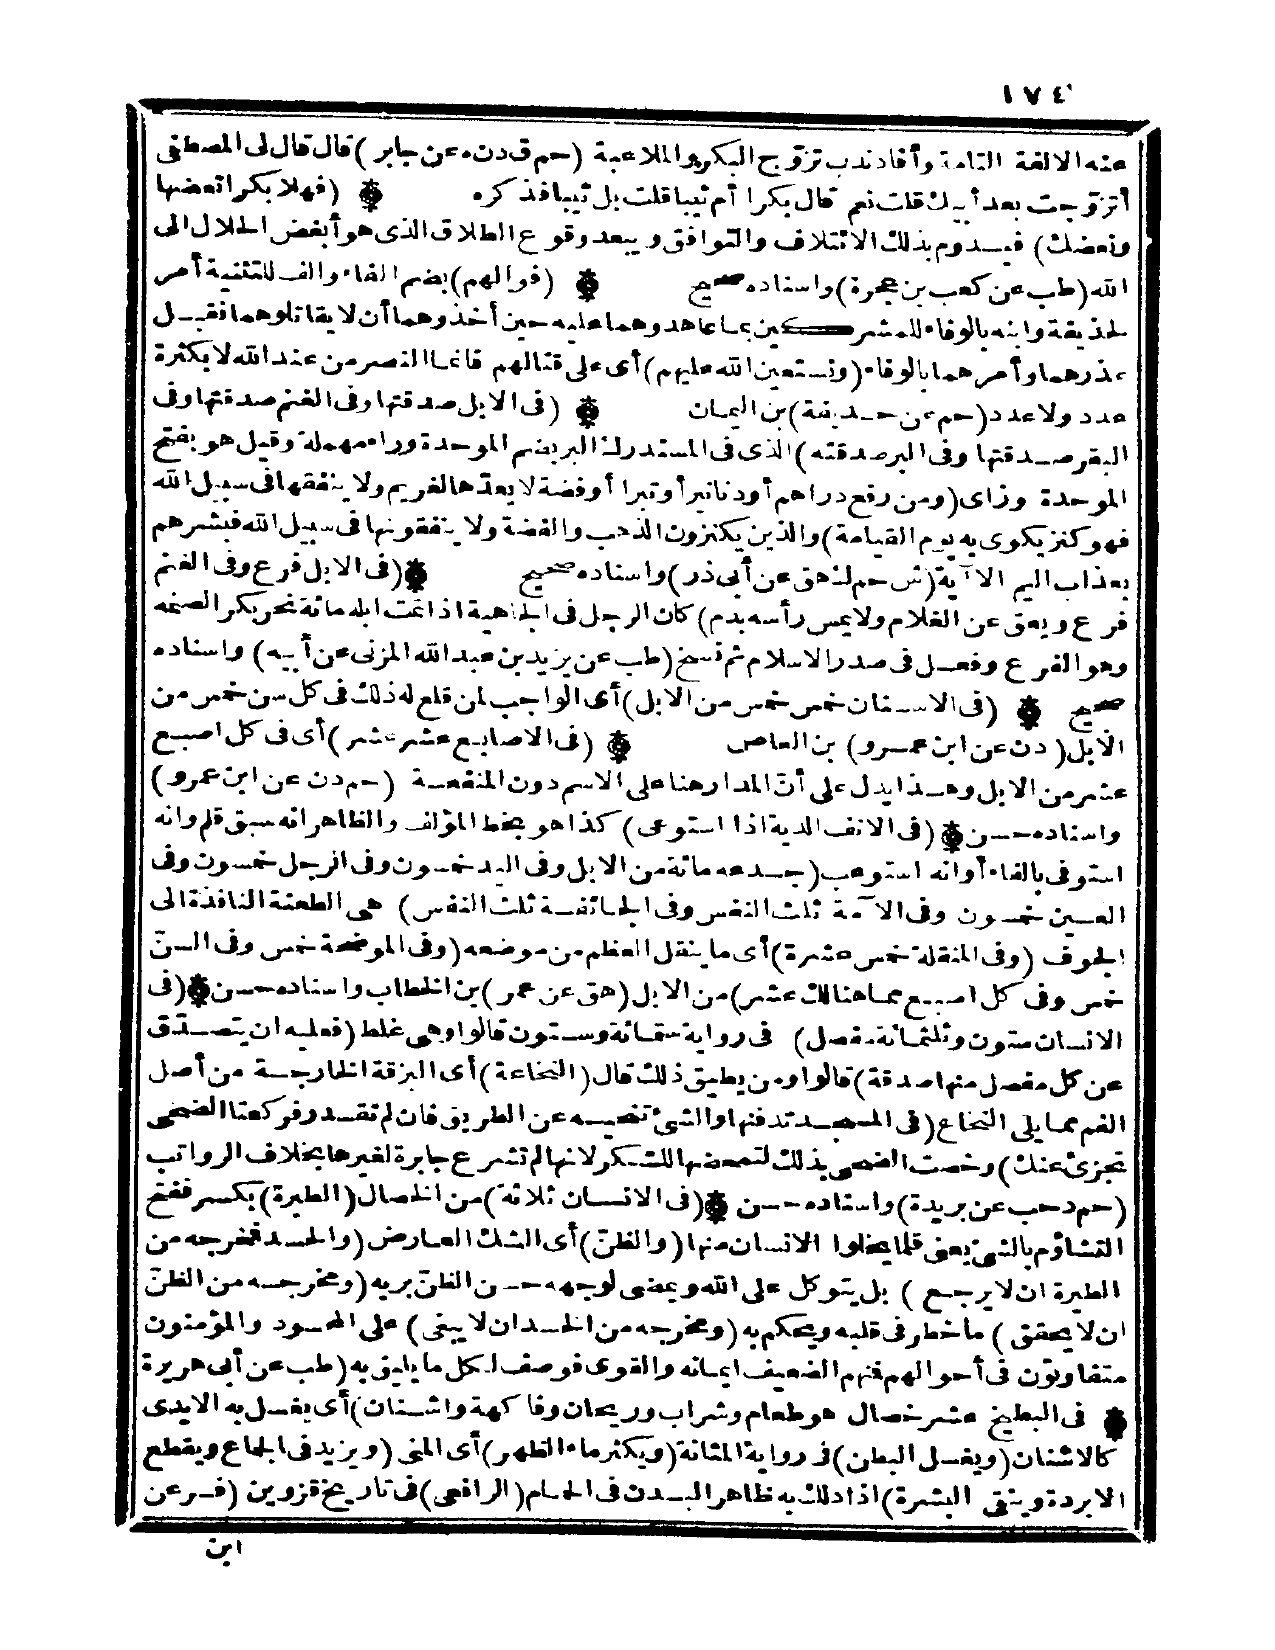 ١٧٤
عنه الالفة التامة وأفاد ندب تزوّج البكر والملاعبة (حم ق د ن ه عن جابر) قال قال لى المصطفى
أتزوّجت بعد أبيك قلت نعم قال بكرا أم ثيبا قلت بل ثيبا فذكره (فهلا بكرا تعضها
وتعضك) فيدوم بذلك الائتلاف والتوافق ويبعد وقوع الطلاق الذى هو أبغض الحلال الى
الله (طب عن كعب بن عجرة) واسناده صحيح (فوالهم) بضم الفاء والف للتثنية أمر
لحذيفة وابنه بالوفاء للمشركين بما عاهدوهما عليه حين أخذوهما أن لا يقاتلوهما فقبل
عذرهما وأمرهما بالوفاء (ونستعين الله عليهم) أى على قتالهم فانما النصر من عند الله لا بكثرة
عدد ولا عدد (حم عن حذيفة) بن اليمان (فى الابل صدقتها وفى الغنم صدقتها وفى
البقر صدقتها وفى البر صدقته) الذى فى المستدرك البر بضم الموحدة وراء مهملة وقيل هو بفتح
الموحدة وزاى (ومن رفع دراهم أو دنانير أو تبرا أو فضة لا يعدّها لغريم ولا ينفقها فى سبيل الله
فهو كنز يكوى به يوم القيامة) والذين يكنزون الذهب والفضة ولا ينفقونها فى سبيل الله فبشرهم
بعذاب اليم الآية (ش حم ك هق عن أبى ذر) واسناده صحيح (فى الابل فرع وفى الغنم
فرع ويعق عن الغلام ولا يمس رأسه بدم) كان الرجل فى الجاهلية اذا تمت ابله مائة نحر بكرا لصنمه
وهو الفرع وفعل فى صدر الاسلام ثم نسخ (طب عن يزيد بن عبد الله المزنى عن أبيه) واسناده
صحيح (فى الاسنان خمس خمس من الابل) أى الواجب لمن قلع له ذلك فى كل سن خمس من
الابل (د ن عن ابن عمرو) بن العاص (فى الاصابع عشر عشر) أى فى كل اصبع
عشر من الابل وهذا يدل على أنّ المدار هنا على الاسم دون المنفعة (حم د ن عن ابن عمرو)
واسناده حسن (فى الانف الدية اذا استوعى) كذا هو بخط المؤلف والظاهر انه سبق قلم وانه
استوفى بالفاء أو انه استوعب (جدعه مائة من الابل وفى اليد خمسون وفى الرجل خمسون وفى
العين خمسون وفى الآمة ثلث النفس وفى الجائفة ثلث النفس) هى الطعنة النافذة الى
الجوف (وفى المنقلة خمس عشرة) أى ما ينقل العظم من موضعه (وفى الموضحة خمس وفى السنّ
خمس وفى كل اصبع مما هنالك عشر) من الابل (هق عن عمر) بن الخطاب واسناده حسن (فى
الانسان ستون وثلثمائة مفصل) فى رواية ستمائة وستون قالوا وهى غلط (فعليه ان يتصدّق
عن كل مفصل منها صدقة) قالوا ومن يطيق ذلك قال (النخاعة) أى البزقة الخارجة من أصل
الفم مما يلى النخاع (فى المسجد تدفنها والشئ تنحيه عن الطريق فان لم تقدر فركعتا الضحى
تجزئ عنك) وخصت الضحى بذلك لتمحضها للشكر لانها لم تشرع جابرة لغيرها بخلاف الرواتب
(حم د حب عن بريدة) واسناده حسن (فى الانسان ثلاثة) من الخصال (الطيرة) بكسر ففتح
التشاؤم بالشئ يعنى قلما يخلوا الانسان منها (والظنّ) أى الشك العارض (والحسد فمخرجه من
الطيرة ان لا يرجع) بل يتوكل على الله ويمضى لوجهه حسن الظنّ بربه (ومخرجه من الظنّ
ان لا يحقق) ما خطر فى قلبه ويحكم به (ومخرجه من الحسد ان لا يبغى) على المحسود والمؤمنون
متفاوتون فى أحوالهم فمنهم الضعيف ايمانه والقوى فوصف لكل ما يليق به (طب عن أبى هريرة
فى البطيخ عشر خصال هو طعام وشراب وريحان وفاكهة واشنان) أى يغسل به الايدى
كالاشنان (ويغسل البطن) فى رواية المثانة (ويكثر ماء الظهر) أى المنى (ويزيد فى الجماع ويقطع
الابردة وينقى البشرة) اذا دلك به ظاهر البدن فى الحمام (الرافعى) فى تاريخ قزوين (فر عن
ابن